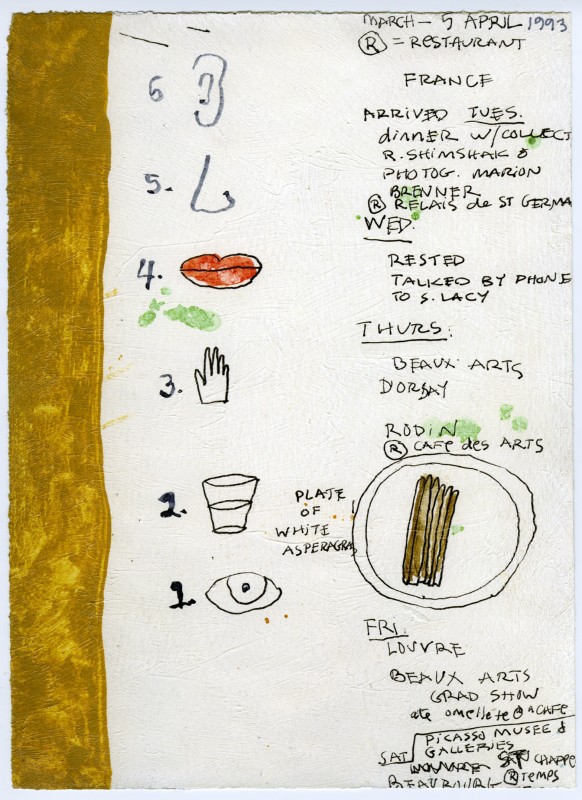 MARCH - 5 APRIL 1993
Ⓡ = RESTAURANT
FRANCE
ARRIVED TUES.
dinner w/collect
R. SHIMSHAK &
PHOTOG. MARION
BRENNER
Ⓡ RELAIS de ST GERMA
WED.
RESTED
TALKED BY PHONE
TO S. LACY
THURS.
BEAUX ARTS
D'ORSAY
RODiN
Ⓡ CAFE des ARTS
PLATE
OF
WHITE
ASPERAGRAS
FRI.
LOUVRE
BEAUX ARTS
GRAD SHOW
ate omellete @ a CAFE
PICASSO MUSEE &
GALLERIES
SAT ST CHAPPE
BEAUBOURG Ⓡ TEMPS
6
5.
4.
3.
2.
1.